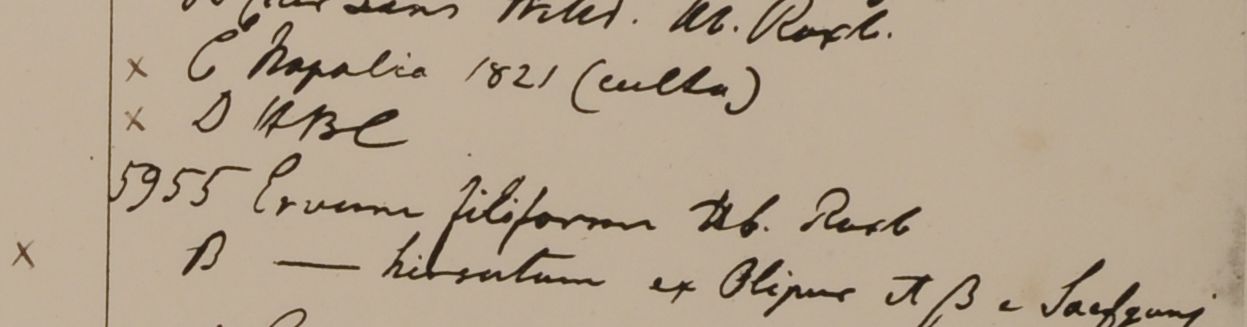 Willd. Hb. Roxb.
× C Napalia 1821 (culta)
× D HBC
5955 Ervum filiforme Hb. Roxb
× B — hirsutum ex Olipur et β e